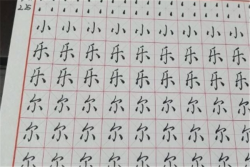 小小小小小小小小小
乐乐乐乐乐乐乐乐乐
乐乐乐乐乐乐乐乐乐
尔尔尔尔尔尔尔尔尔
尔尔尔尔尔尔尔尔尔
尔尔尔尔尔尔尔尔尔